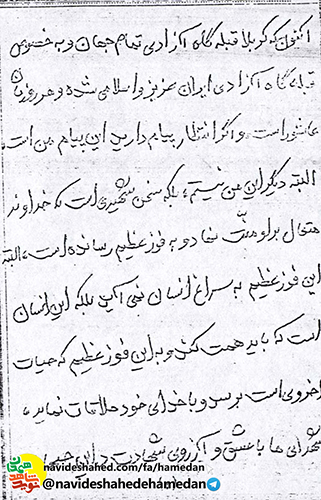 اکنون که کربلا قبله گاه آزادی تمام جهان و به خصوص
قبله گاه آزادی ایران عزیز و اسلامی شده و هر روزمان
عاشوراست و اگر انتظار پیام دارید این پیام من است
البته دیگر این من نیستم، بلکه سخن شهیدی است که خداوند
متعال بر او منت نهاد و به فوز عظیم رسانده است، البته
این فوز عظیم به سراغ انسان نمی آید بلکه این انسان
است که باید همت کند و به این فوز عظیم که حیات
اخروی است برسد و با خدای خود ملاقات نماید،
شهدای ما با عشق و آرزوی شهادت در این
navideshahed.com/fa/hamedan
@navideshahedehamedan